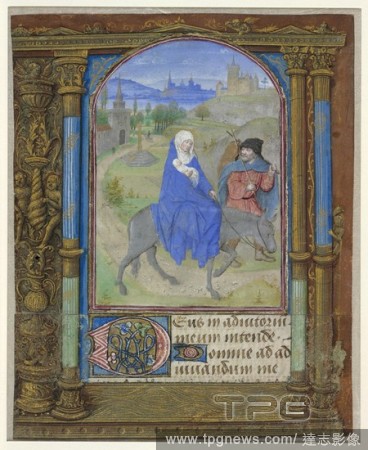 Deus in adiutoriu
meum intende.
Domine ad ad
iuuandum me
TPG
www.tpgnews.com/達志影像